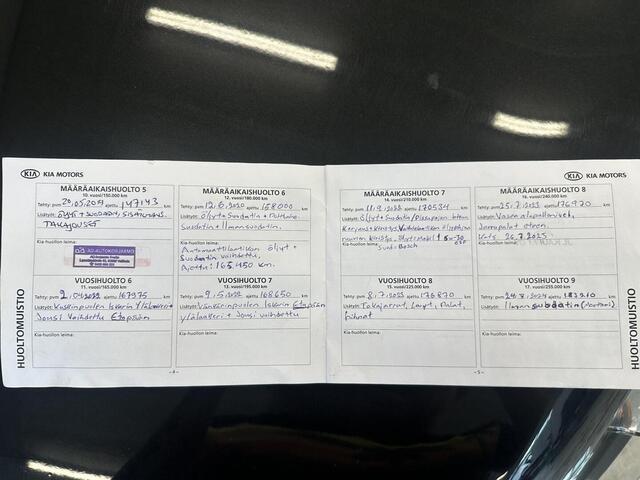 KIA KIA MOTORS
MÄÄRÄAIKAISHUOLTO 5
10. vuosi/150.000 km
Tehty: pvm 20.05.2019 ajettu 147143 km
Lisätyöt: ÖLJYT + SUODATIN, SISÄILMAS.
TAKAJOUSET
Kia-huollon leima:
AD-AUTOKORJAAMO
MÄÄRÄAIKAISHUOLTO 6
12. vuosi/180.000 km
Tehty: pvm 12.6.2020 ajettu 158000 km
Lisätyöt: Öljyt + Suodatin + Polttoaine
Suodatin + Ilmansuodatin.
Kia-huollon leima:
Automaattilaatikon öljyt +
Suodatin vaihdettu,
Ajettu: 165.450 km.
VUOSIHUOLTO 6
11. vuosi/165.000 km
Tehty: pvm 2.04.2022 ajettu 167975 km
Lisätyöt: Kuskinpuolen Iskarin Ylälaakeri +
Jousi Vaihdettu Etupään
Kia-huollon leima:
VUOSIHUOLTO 7
13. vuosi/195.000 km
Tehty: pvm 9.5.2022 ajettu 168650 km
Lisätyöt: Vänkärinpuolen Iskarin Etupään
ylälaakeri + Jousi vaihdettu
Kia-huollon leima:
HUOLTOMUISTIO
- 4 -
KIA KIA MOTORS
MÄÄRÄAIKAISHUOLTO 7
14. vuosi/210.000 km
Tehty: pvm 11.9.2022 ajettu 170534 km
Lisätyöt: Öljyt + Suodatin
Kia-huollon leima:
5W-30
Suod: Bosch
MÄÄRÄAIKAISHUOLTO 8
16. vuosi/240.000 km
Tehty: pvm 25.7.2023 ajettu 176970 km
Lisätyöt: Vasen alapallonivel,
Jarrupalat eteen.
Kats 26.7.2023
VUOSIHUOLTO 8
15. vuosi/225.000 km
Tehty: pvm 8.7.2023 ajettu 176870 km
Lisätyöt: Takajarrut, Levyt, Palat,
Kia-huollon leima:
VUOSIHUOLTO 9
17. vuosi/255.000 km
Tehty: pvm 24.7.2024 ajettu 187210 km
Lisätyöt: Ilman suodatin
Kia-huollon leima:
HUOLTOMUISTIO
- 5 -